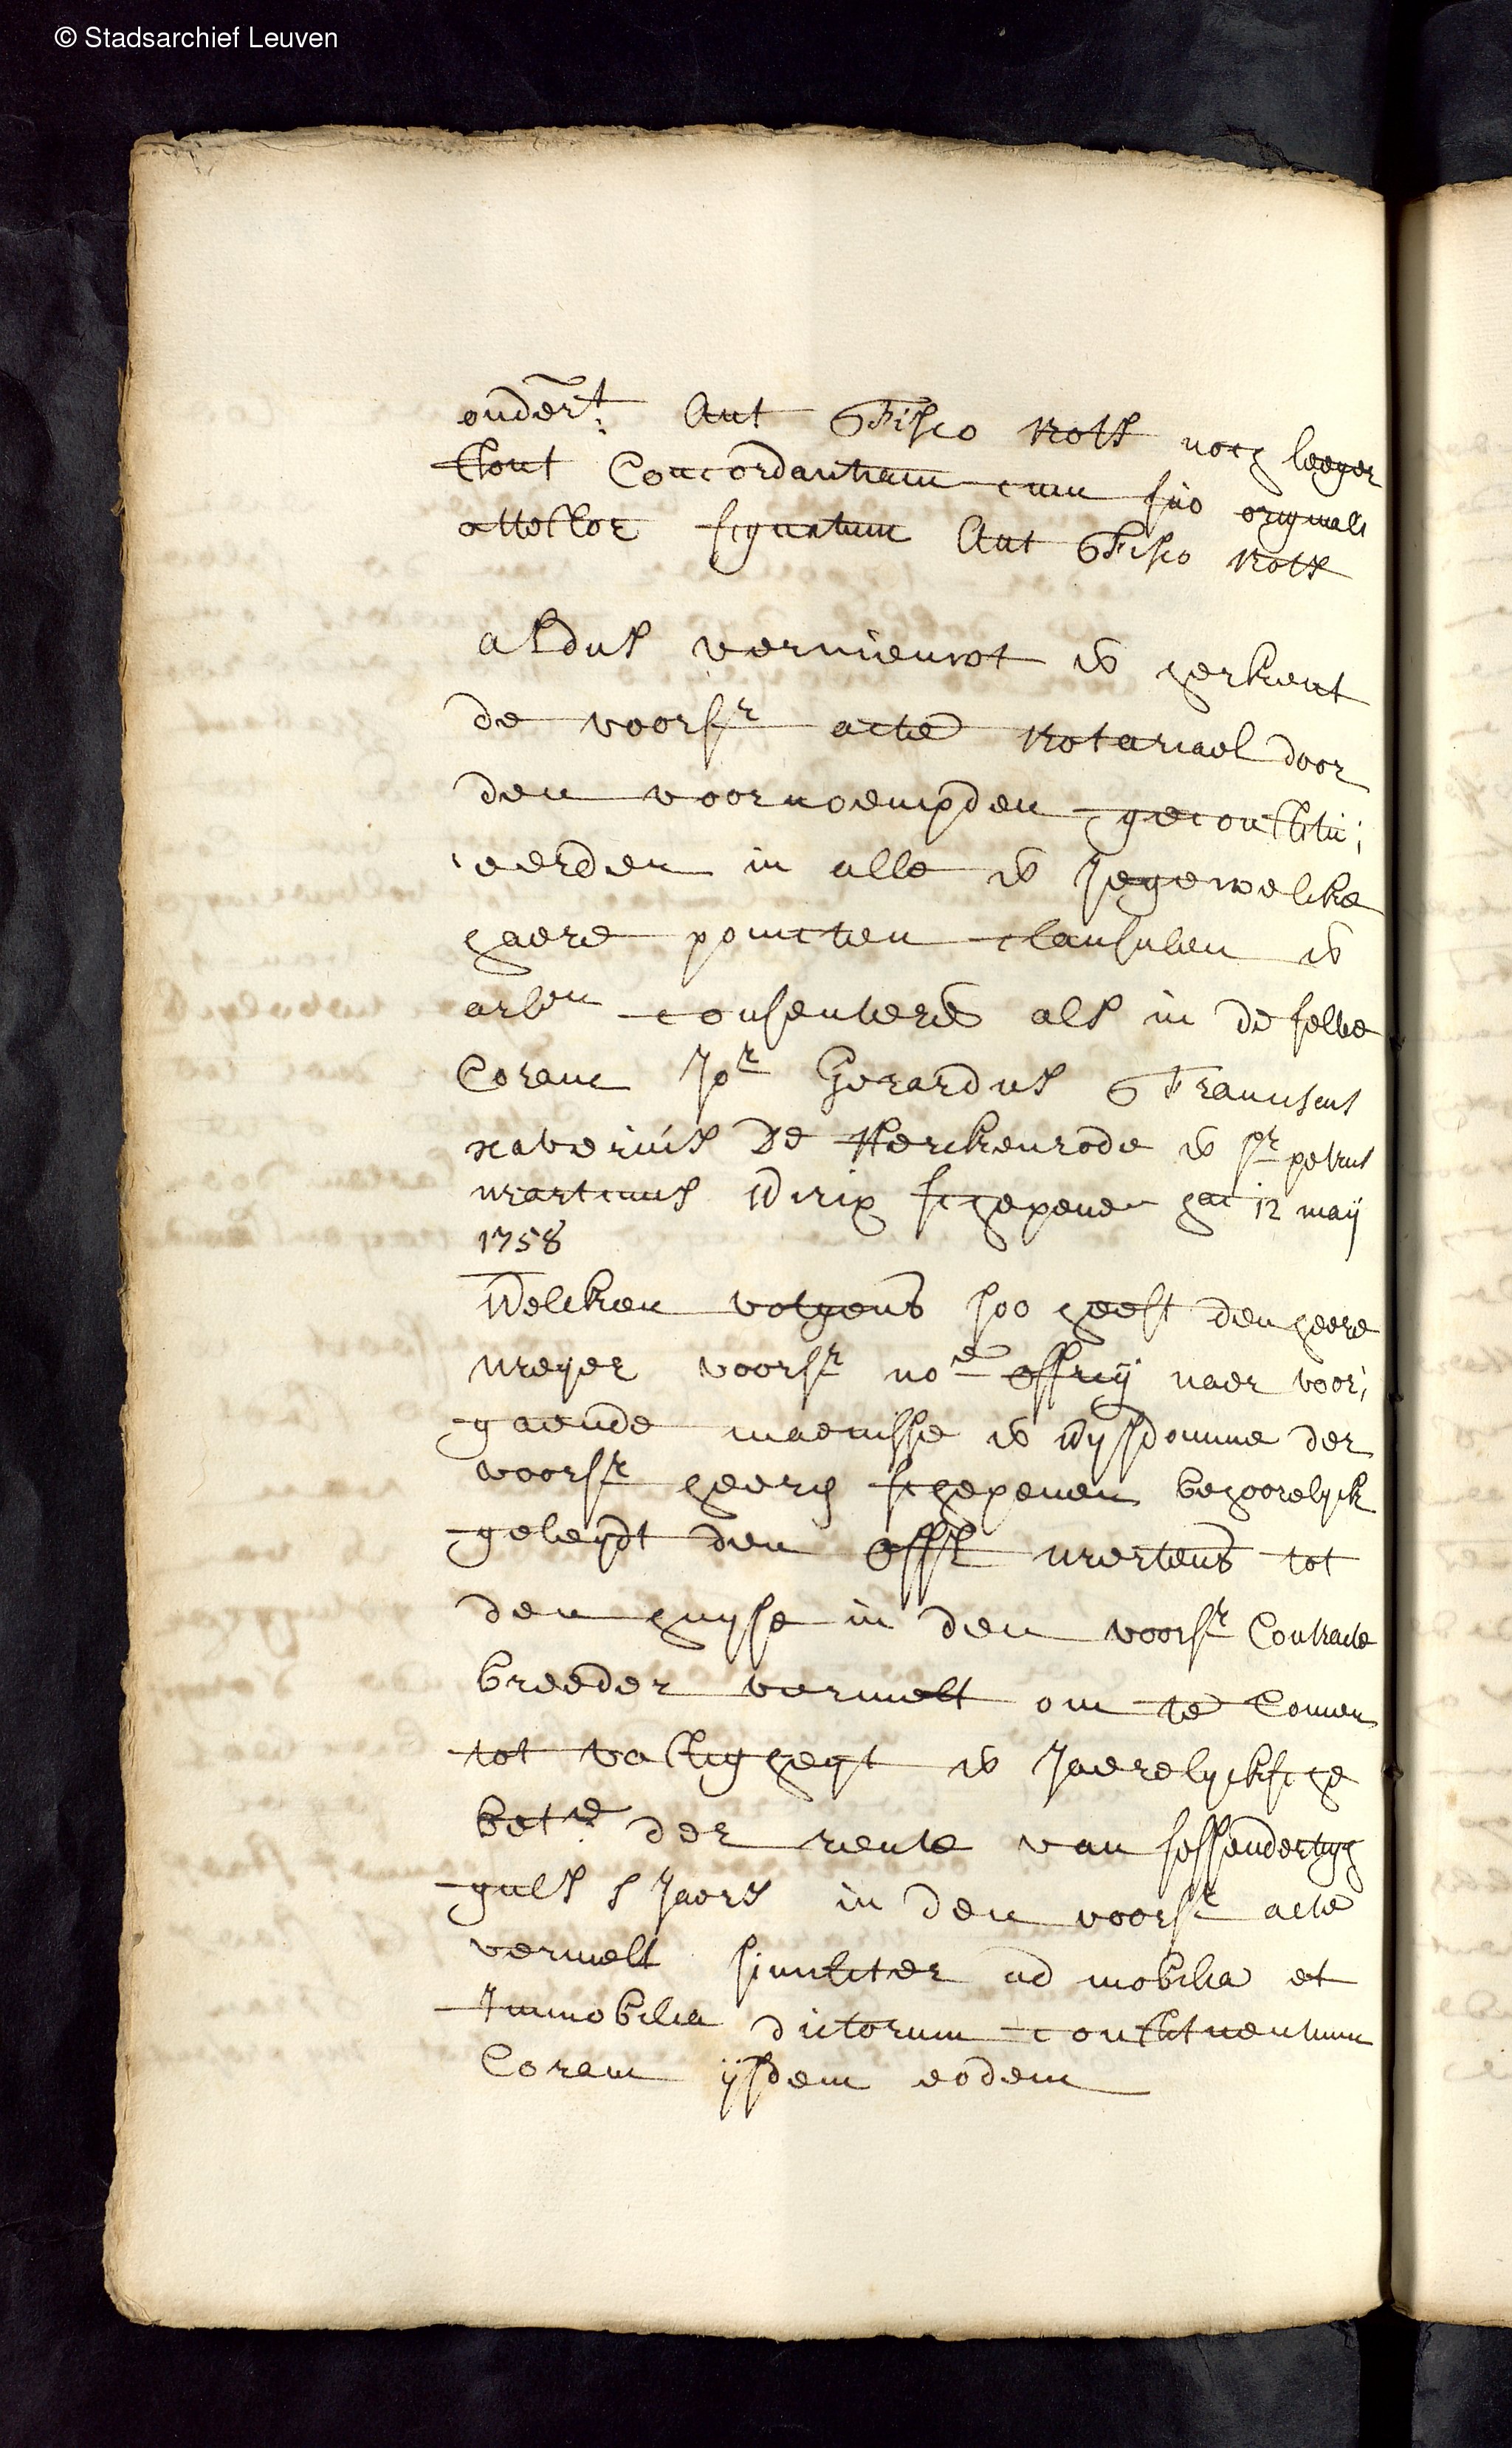 © Stadsarchief Leuven
ondert: Ant Fisco nots noch leeger
stont Concordantiam cum suo originali
attestor signatum Ant Fisco nots
aldus vernieuwt ende herkent
de voorsr acte notariael door
den voornoempden geconstitu;
eerden in alle ende jegewelcke
haere poincten clausulen ende
arlen consenterende als in de selve
Coram Jor Gerardus Franciscus
xaverius De Herckenrode ende sr petrus
martinus Wirix schepenen hac 12 maij
1758
Welcken volgens soo heeft den heere
meyer voorsr noe officij naer voor;
gaende maenisse ende wijsdomme der
voorsr heeren schepenen behoorelyck
geleijdt den offl mertens tot
den huyse in den voorsr Contracte
breeder vermelt om te Comen
tot vastigheyt ende Jaerelyckssche
betre der rente van sessendertigh
guls s Jaers in den voorsr acte
vermelt similiter ad mobilia et
Immobilia dictorum constituentium
Coram ijsdem eodem